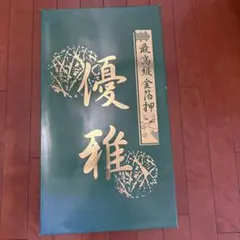 最高級 金箔押
優雅